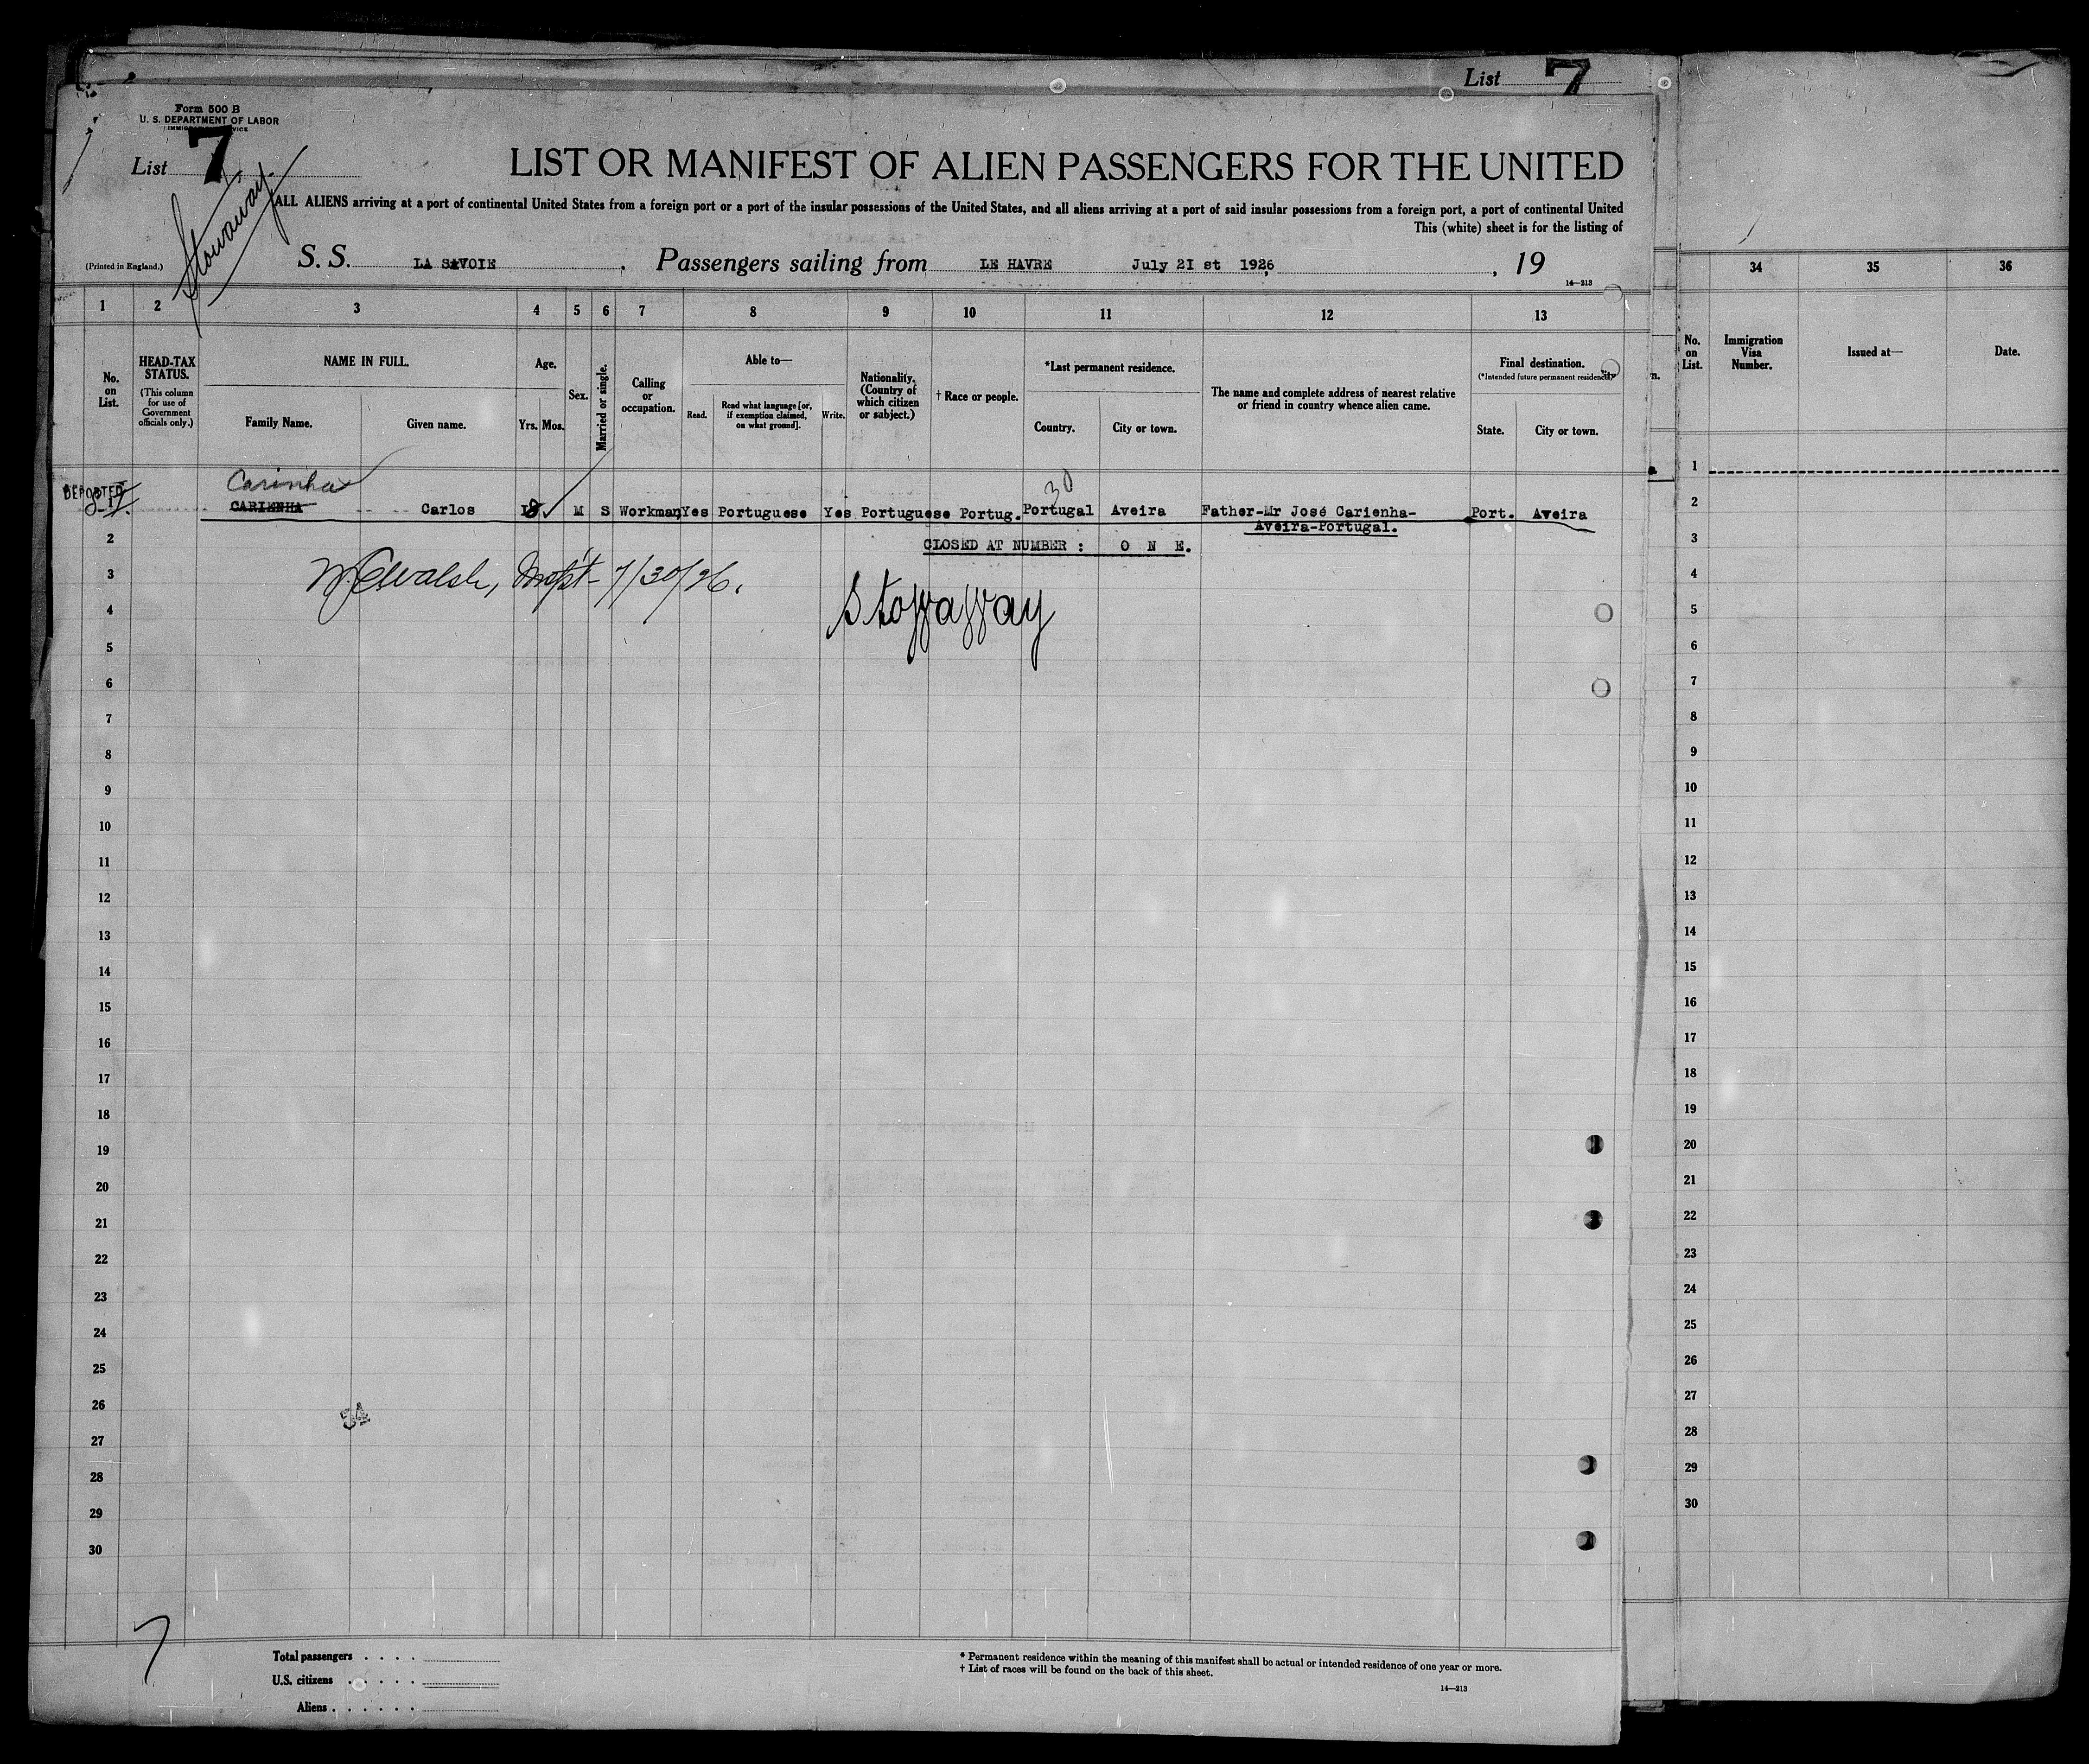 List 7
Form 500 B
U. S. DEPARTMENT OF LABOR
IMMIGRATION SERVICE
List 7
Stowaway.
LIST OR MANIFEST OF ALIEN PASSENGERS FOR THE UNITED
ALL ALIENS arriving at a port of continental United States from a foreign port or a port of the insular possessions of the United States, and all aliens arriving at a port of said insular possessions from a foreign port, a port of continental United
This (white) sheet is for the listing of
(Printed in England.)
S. S. LA SAVOIE . Passengers sailing from LE HAVRE July 21 st 1926 , 19
14—213
1 2 3 4 5 6 7 8 9 10 11 12 13
34 35 36
No. on List.
HEAD-TAX STATUS.
(This column for use of Government officials only.)
NAME IN FULL.
Family Name.
Given name.
Age.
Yrs. Mos.
Sex.
Married or single.
Calling or occupation.
Able to—
Read.
Read what language [or, if exemption claimed, on what ground].
Write.
Nationality. (Country of which citizen or subject.)
† Race or people.
*Last permanent residence.
Country.
City or town.
The name and complete address of nearest relative or friend in country whence alien came.
Final destination.
(*Intended future permanent residence.)
State.
City or town.
n.
No. on List.
Immigration Visa Number.
Issued at—
Date.
Carinha
30
DEPORTED
1 CARIENHA Carlos 18 M S Workman Yes Portuguese Yes Portuguese Portug. Portugal Aveira Father-Mr José Carienha- Port. Aveira
Aveira-Portugal.
2 CLOSED AT NUMBER : O N E.
3 7/30/26.
4 Stowaway
5
6
7
8
9
10
11
12
13
14
15
16
17
18
19
20
21
22
23
24
25
26
27
28
29
30
1
2
3
4
5
6
7
8
9
10
11
12
13
14
15
16
17
18
19
20
21
22
23
24
25
26
27
28
29
30
7
Total passengers . . . .
U.S. citizens . . . . . .
Aliens . . . . . .
* Permanent residence within the meaning of this manifest shall be actual or intended residence of one year or more.
† List of races will be found on the back of this sheet.
14—213